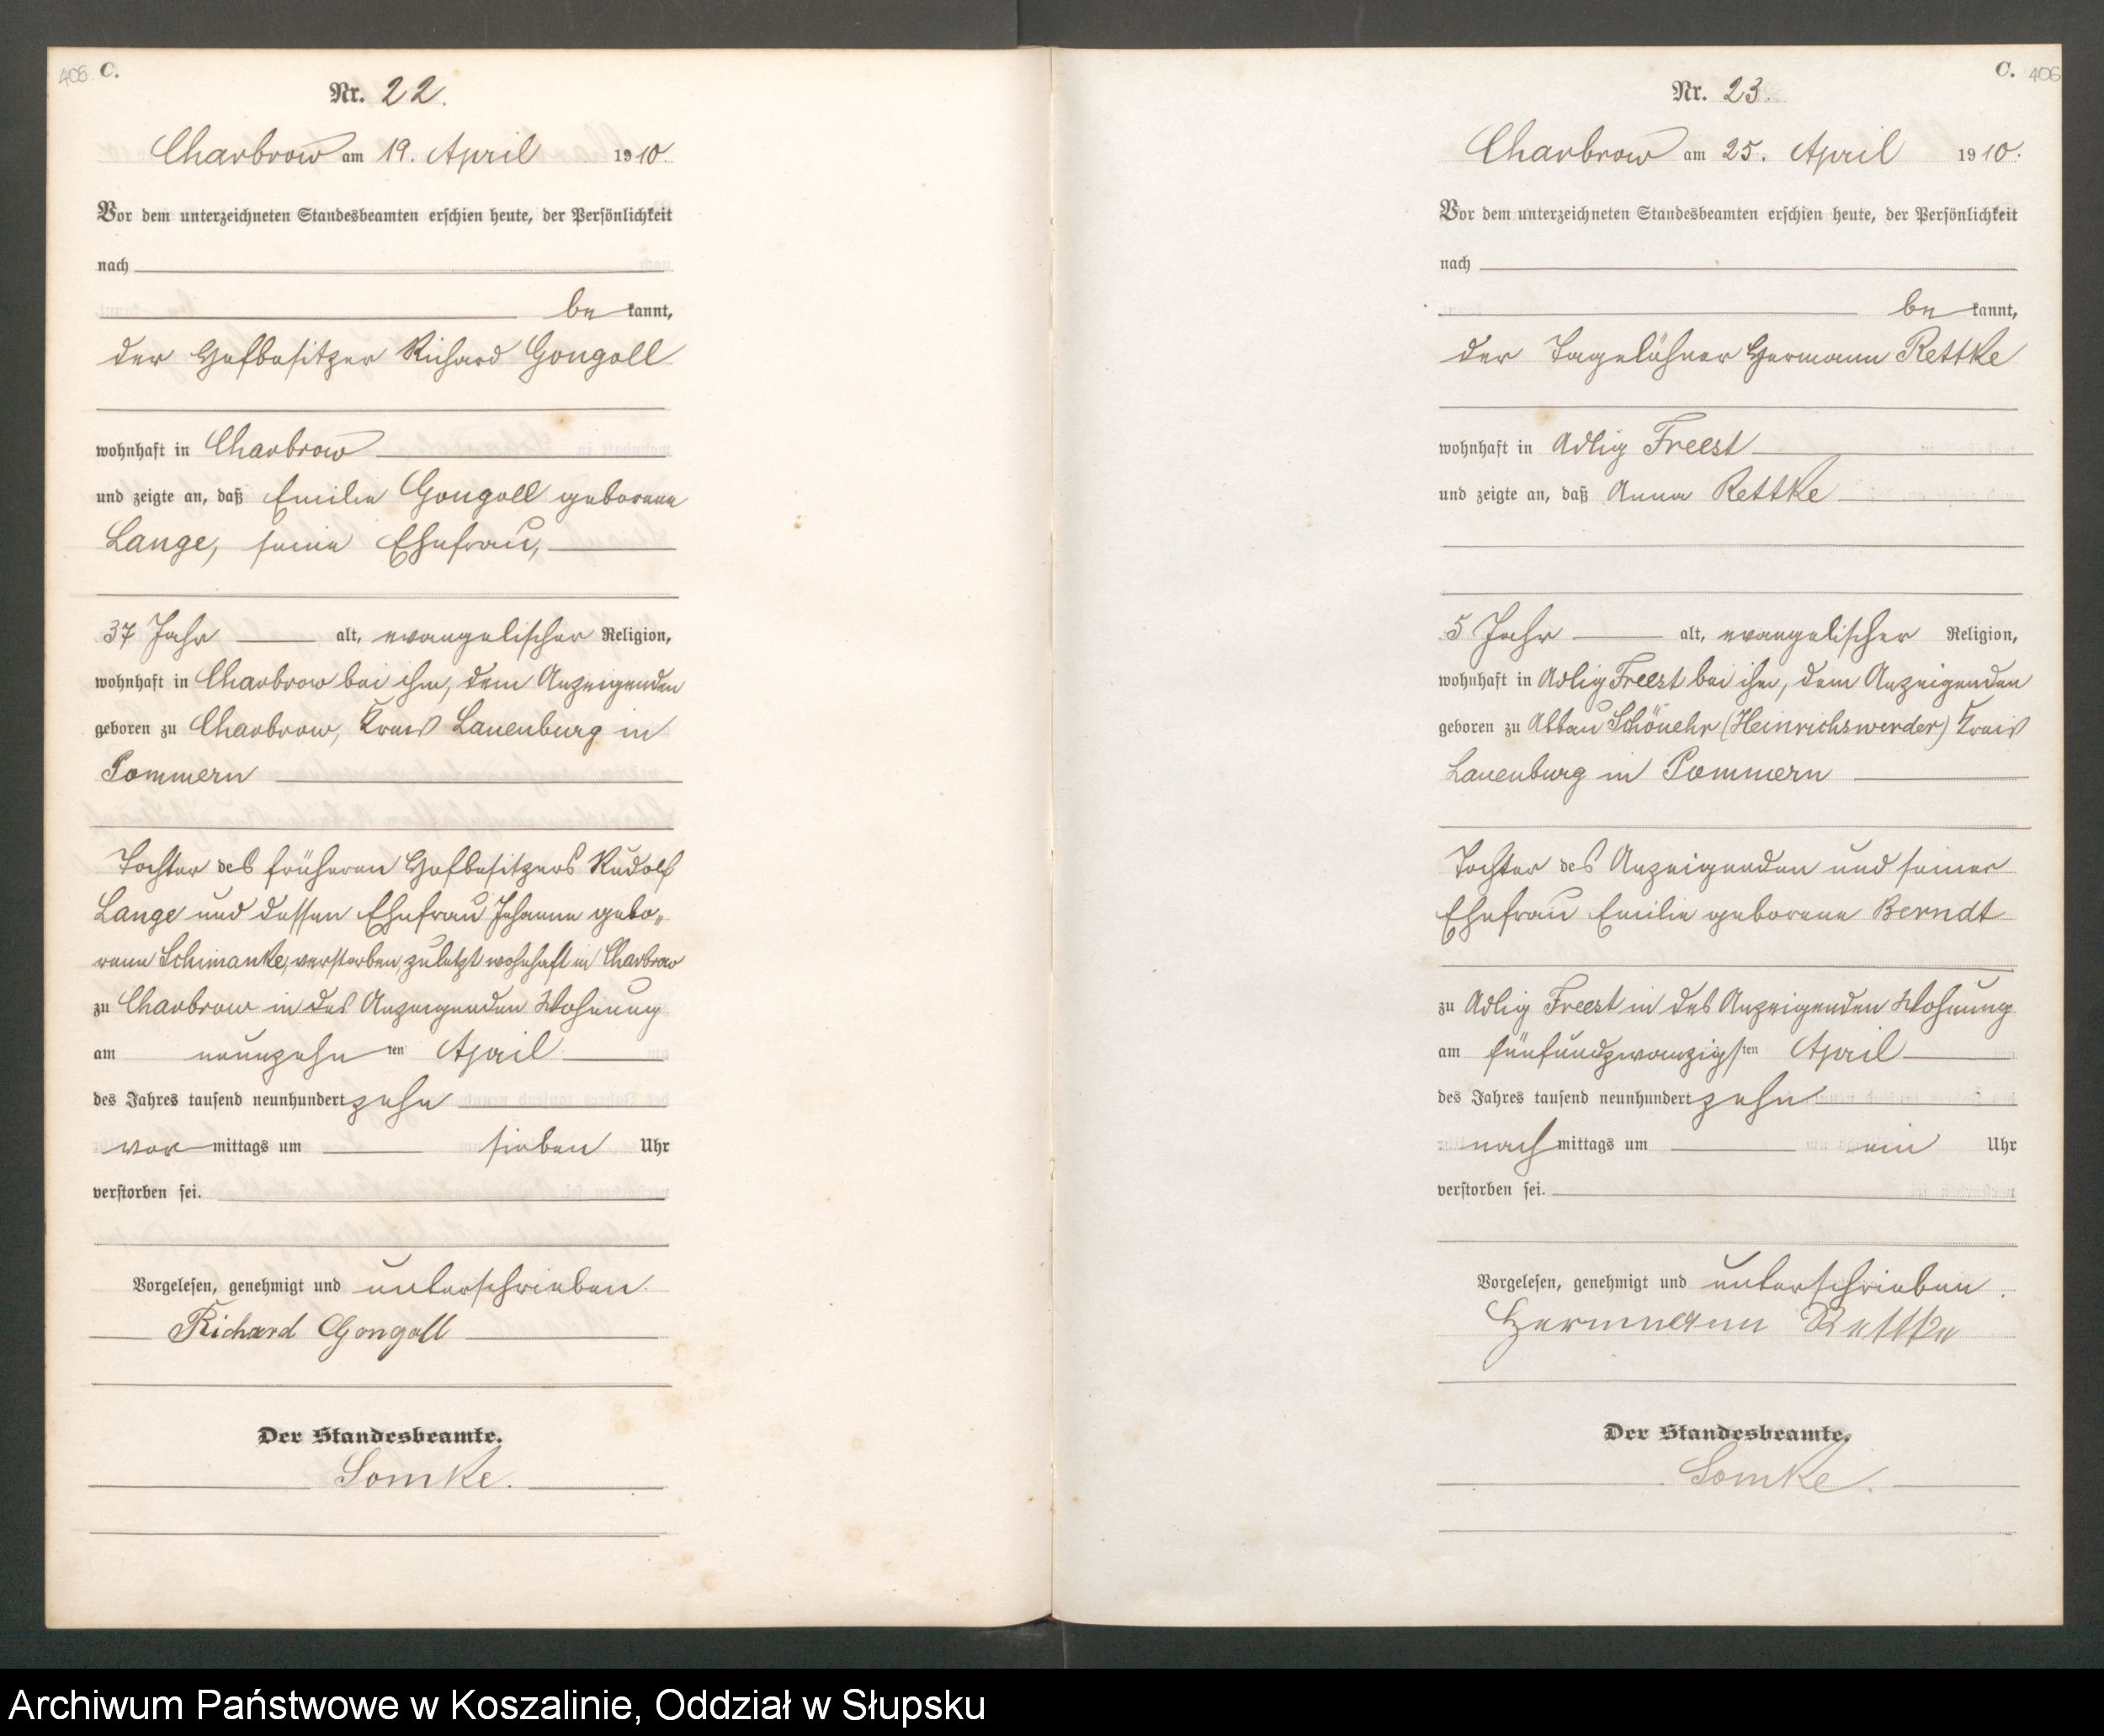 406 C.
Nr. 22.
Charbrow am 19. April 1910.
Vor dem unterzeichneten Standesbeamten erschien heute, der Persönlichkeit
nach
be kannt,
der Hofbesitzer Richard Gongoll
wohnhaft in Charbrow
und zeigte an, daß Emilie Gongoll geborene
Lange, seine Ehefrau,
37 Jahr alt, evangelischer Religion,
wohnhaft in Charbrow bei ihm, dem Anzeigenden
geboren zu Charbrow, Kreis Lauenburg in
Pommern
Tochter des früheren Hofbesitzers Rudolf
Lange und dessen Ehefrau Johanne gebo„
rene Schimanke, verstorben, zuletzt wohnhaft in Charbrow
zu Charbrow in des Anzeigenden Wohnung
am neunzehn ten April
des Jahres tausend neunhundert zehn
vor mittags um sieben Uhr
verstorben sei.
Vorgelesen, genehmigt und unterschrieben.
Richard Gongoll
Der Standesbeamte.
Lomke.
C. 406
Nr. 23.
Charbrow am 25. April 1910.
Vor dem unterzeichneten Standesbeamten erschien heute, der Persönlichkeit
nach
be kannt,
der Tagelöhner Hermann Rettke
wohnhaft in Adlig Freest
und zeigte an, daß Anna Rettke
5 Jahr alt, evangelischer Religion,
wohnhaft in Adlig Freest bei ihm, dem Anzeigenden
geboren zu Abbau Schönehr (Heinrichswerder) Kreis
Lauenburg in Pommern
Tochter des Anzeigenden und seiner
Ehefrau Emilie geborene Berndt
zu Adlig Freest in des Anzeigenden Wohnung
am fünfundzwanzigsten April
des Jahres tausend neunhundert zehn
nach mittags um ein Uhr
verstorben sei.
Vorgelesen, genehmigt und unterschrieben.
Hermann Rettke
Der Standesbeamte.
Lomke.
Archiwum Państwowe w Koszalinie, Oddział w Słupsku